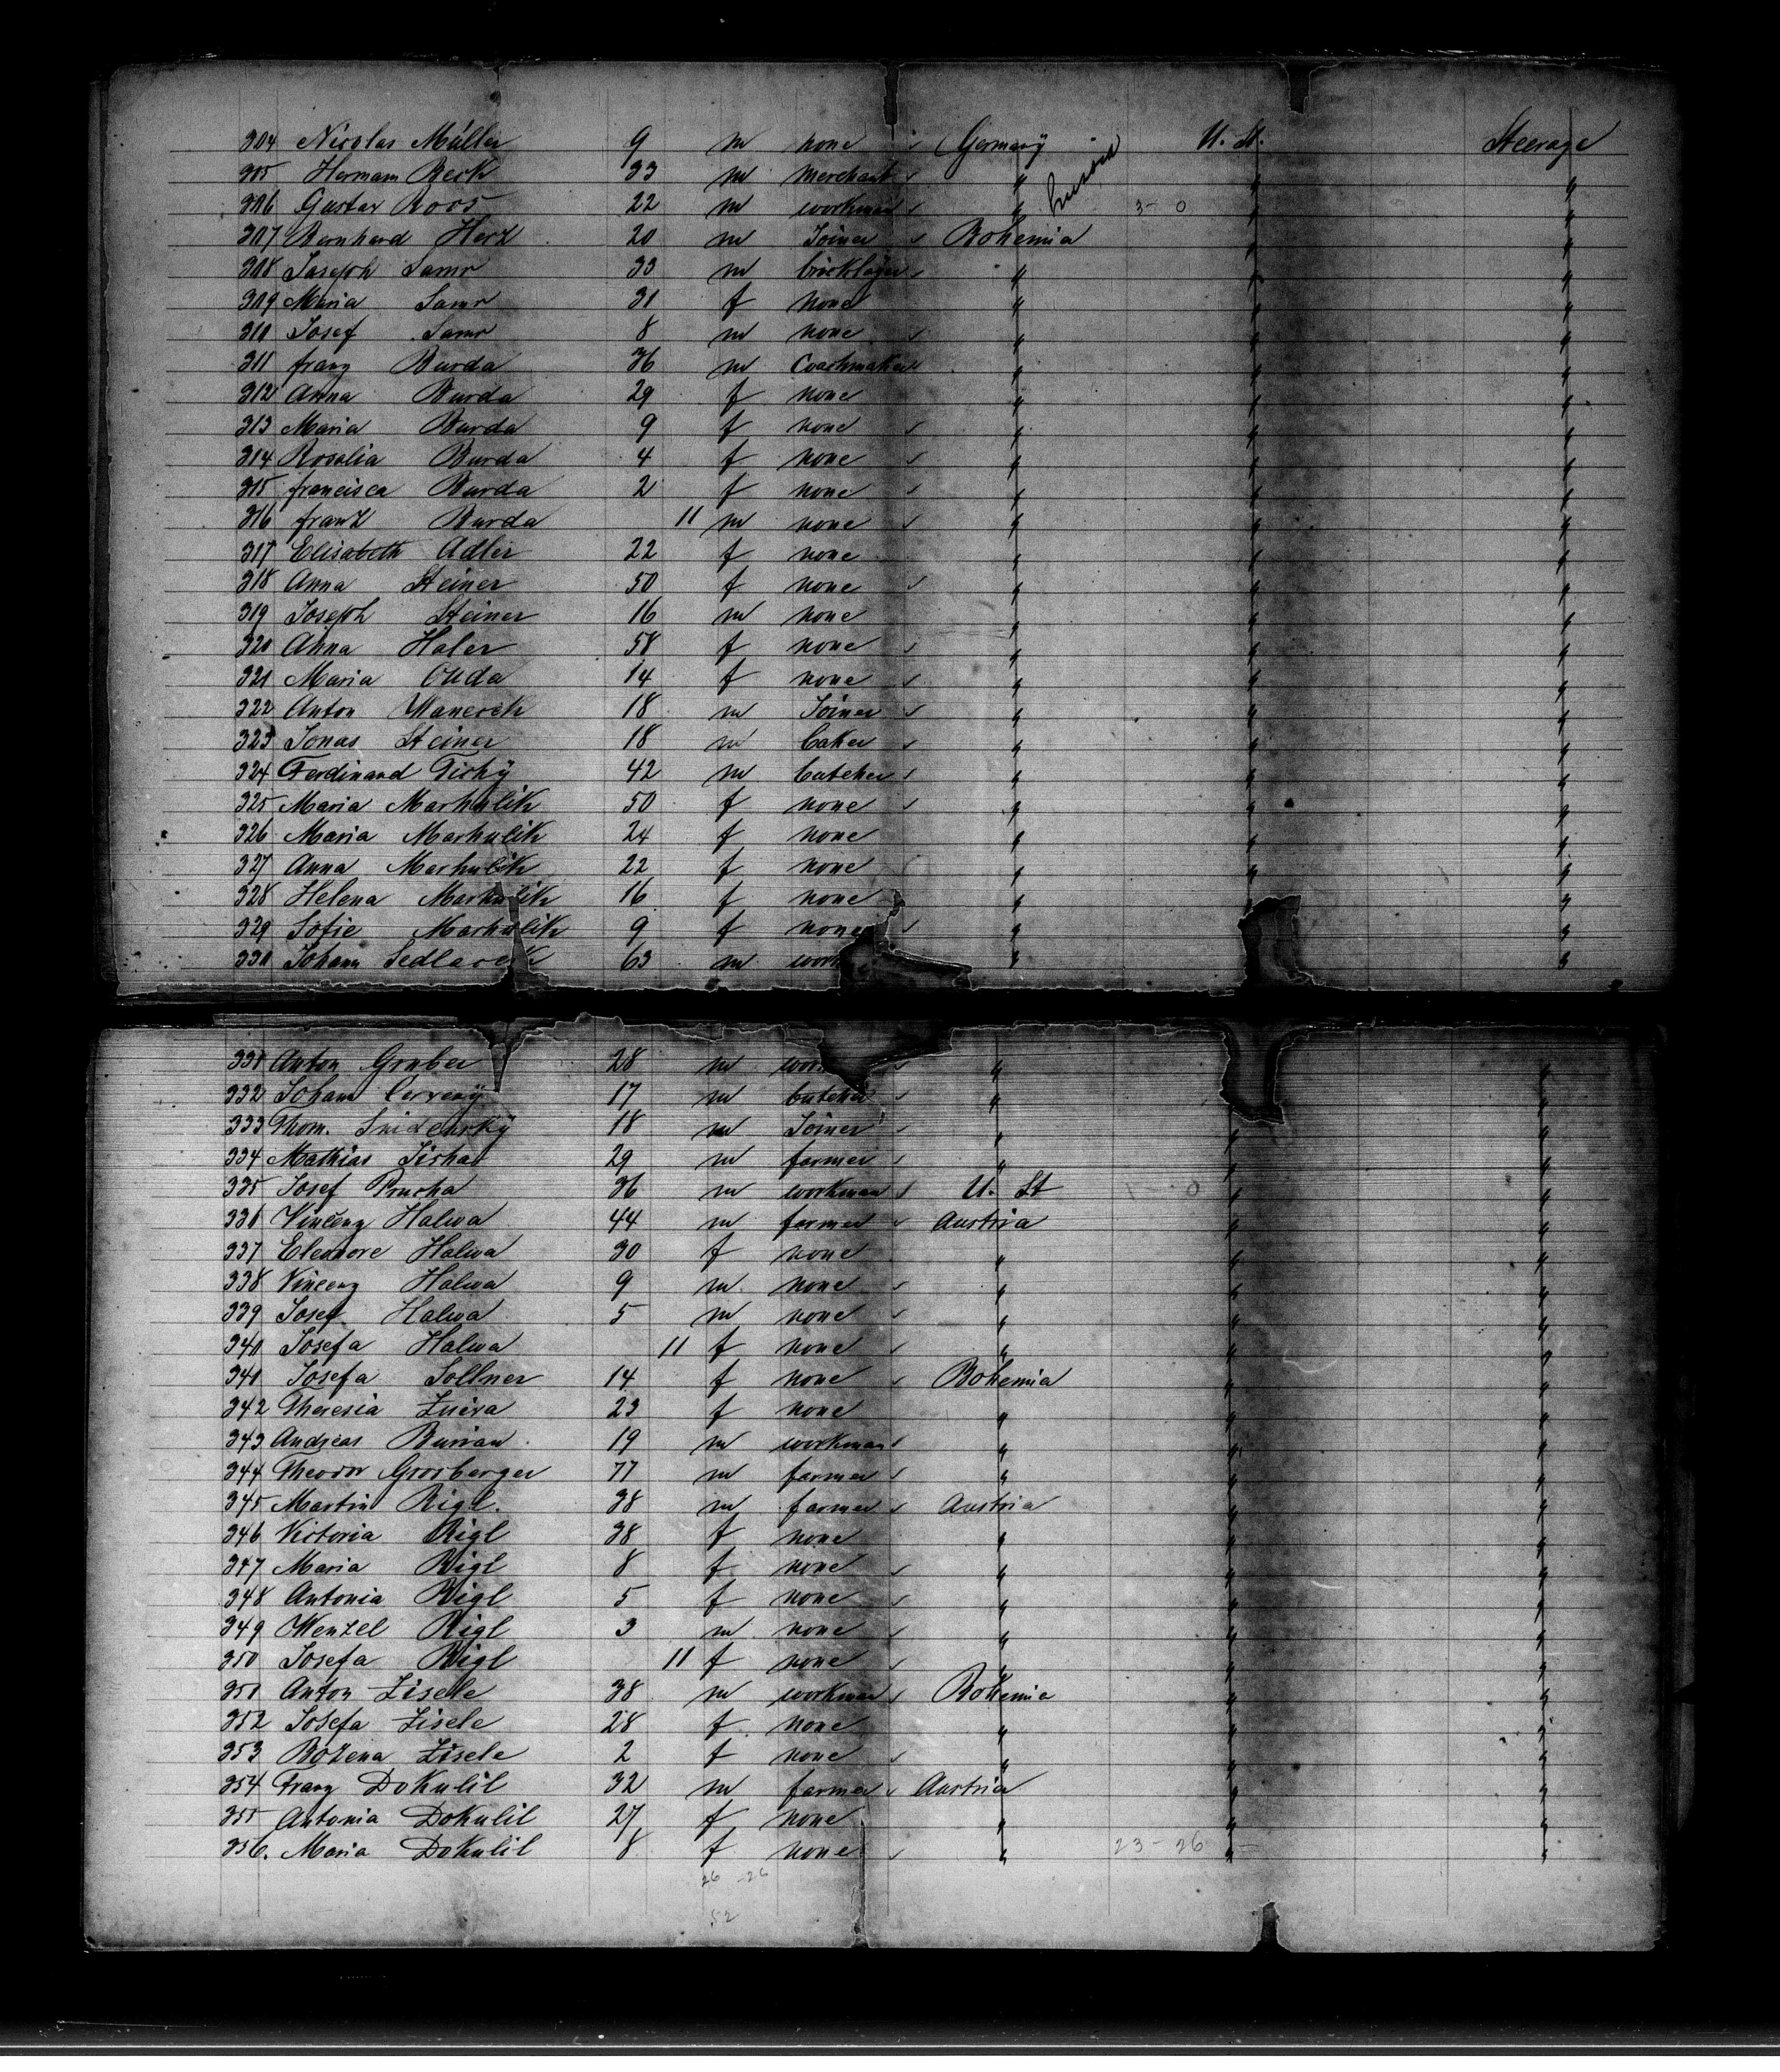 304 Nicolas Müller 9 m none ✓ Germany U. St. Steerage
305 Hermann Beck 33 m merchant ✓ " " "
306 Gustav Roos 22 m workman ✓ " 3 - 0 " "
307 Bernhard Herz 20 m Joiner ✓ Bohemia " "
308 Joseph Samr 33 m bricklayer ✓ " " "
309 Maria Samr 31 f none " " "
310 Josef Samr 8 m none ✓ " " "
311 franz Burda 36 m Coachmaker " " "
312 Anna Burda 29 f none " " "
313 Maria Burda 9 f none ✓ " " "
314 Rosalia Burda 4 f none ✓ " " "
315 francisca Burda 2 f none ✓ " " "
316 franz Burda 11 m none ✓ " " "
317 Elisabeth Adler 22 f none " " "
318 Anna Steiner 50 f none ✓ " " "
319 Joseph Steiner 16 m none " " "
320 Anna Haler 58 f none ✓ " " "
321 Maria Duda 14 f none ✓ " " "
322 Anton 18 m Joiner ✓ " " "
323 Jonas Steiner 18 m baker ✓ " " "
324 Ferdinand Tichÿ 42 m butcher ✓ " " "
325 Maria Marhulik 50 f none ✓ " " "
326 Maria Marhulik 24 f none " " "
327 Anna Marhulik 22 f none " " "
328 Helena Marhulik 16 f none " " "
329 Sofie Marhulik 9 f none ✓ " "
330 Johann Sedlacek 63 m work " "
331 Anton Gruber 28 m wor ✓ " "
332 Johann Cervenÿ 17 m butcher ✓ " "
333 Thom. 18 m Joiner ✓ " " "
334 Mathias Jirha 29 m farmer ✓ " " "
335 Josef Prucha 36 m workman ✓ U. St 0 " "
336 Vincenz Halwa 44 m farmer ✓ Austria " "
337 Eleonore Halwa 30 f none " " "
338 Vincenz Halwa 9 m none ✓ " " "
339 Josef Halwa 5 m none ✓ " " "
340 Josefa Halwa 11 f none ✓ " " "
341 Josefa Sollner 14 f none ✓ Bohemia " "
342 Theresia 23 f none " " "
343 Andreas Burian 19 m workman ✓ " " "
344 Theodor Grosberger 77 m farmer ✓ " " "
345 Martin Rigl. 38 m farmer ✓ Austria " "
346 Victoria Rigl 38 f none " " "
347 Maria Rigl 8 f none ✓ " " "
348 Antonia Rigl 5 f none ✓ " " "
349 Wenzel Rigl 3 m none ✓ " " "
350 Josefa Rigl 11 f none ✓ " " "
351 Anton Zisele 38 m workman ✓ Bohemia " "
352 Josefa Zisele 28 f none " " "
353 Bozena Zisele 2 f none ✓ " " "
354 Franz Dokulil 32 m farmer ✓ Austria " "
355 Antonia Dokulil 27 f none " " "
356. Maria Dokulil 8 f none ✓ " 23 - 26 " "
26 - 26
52